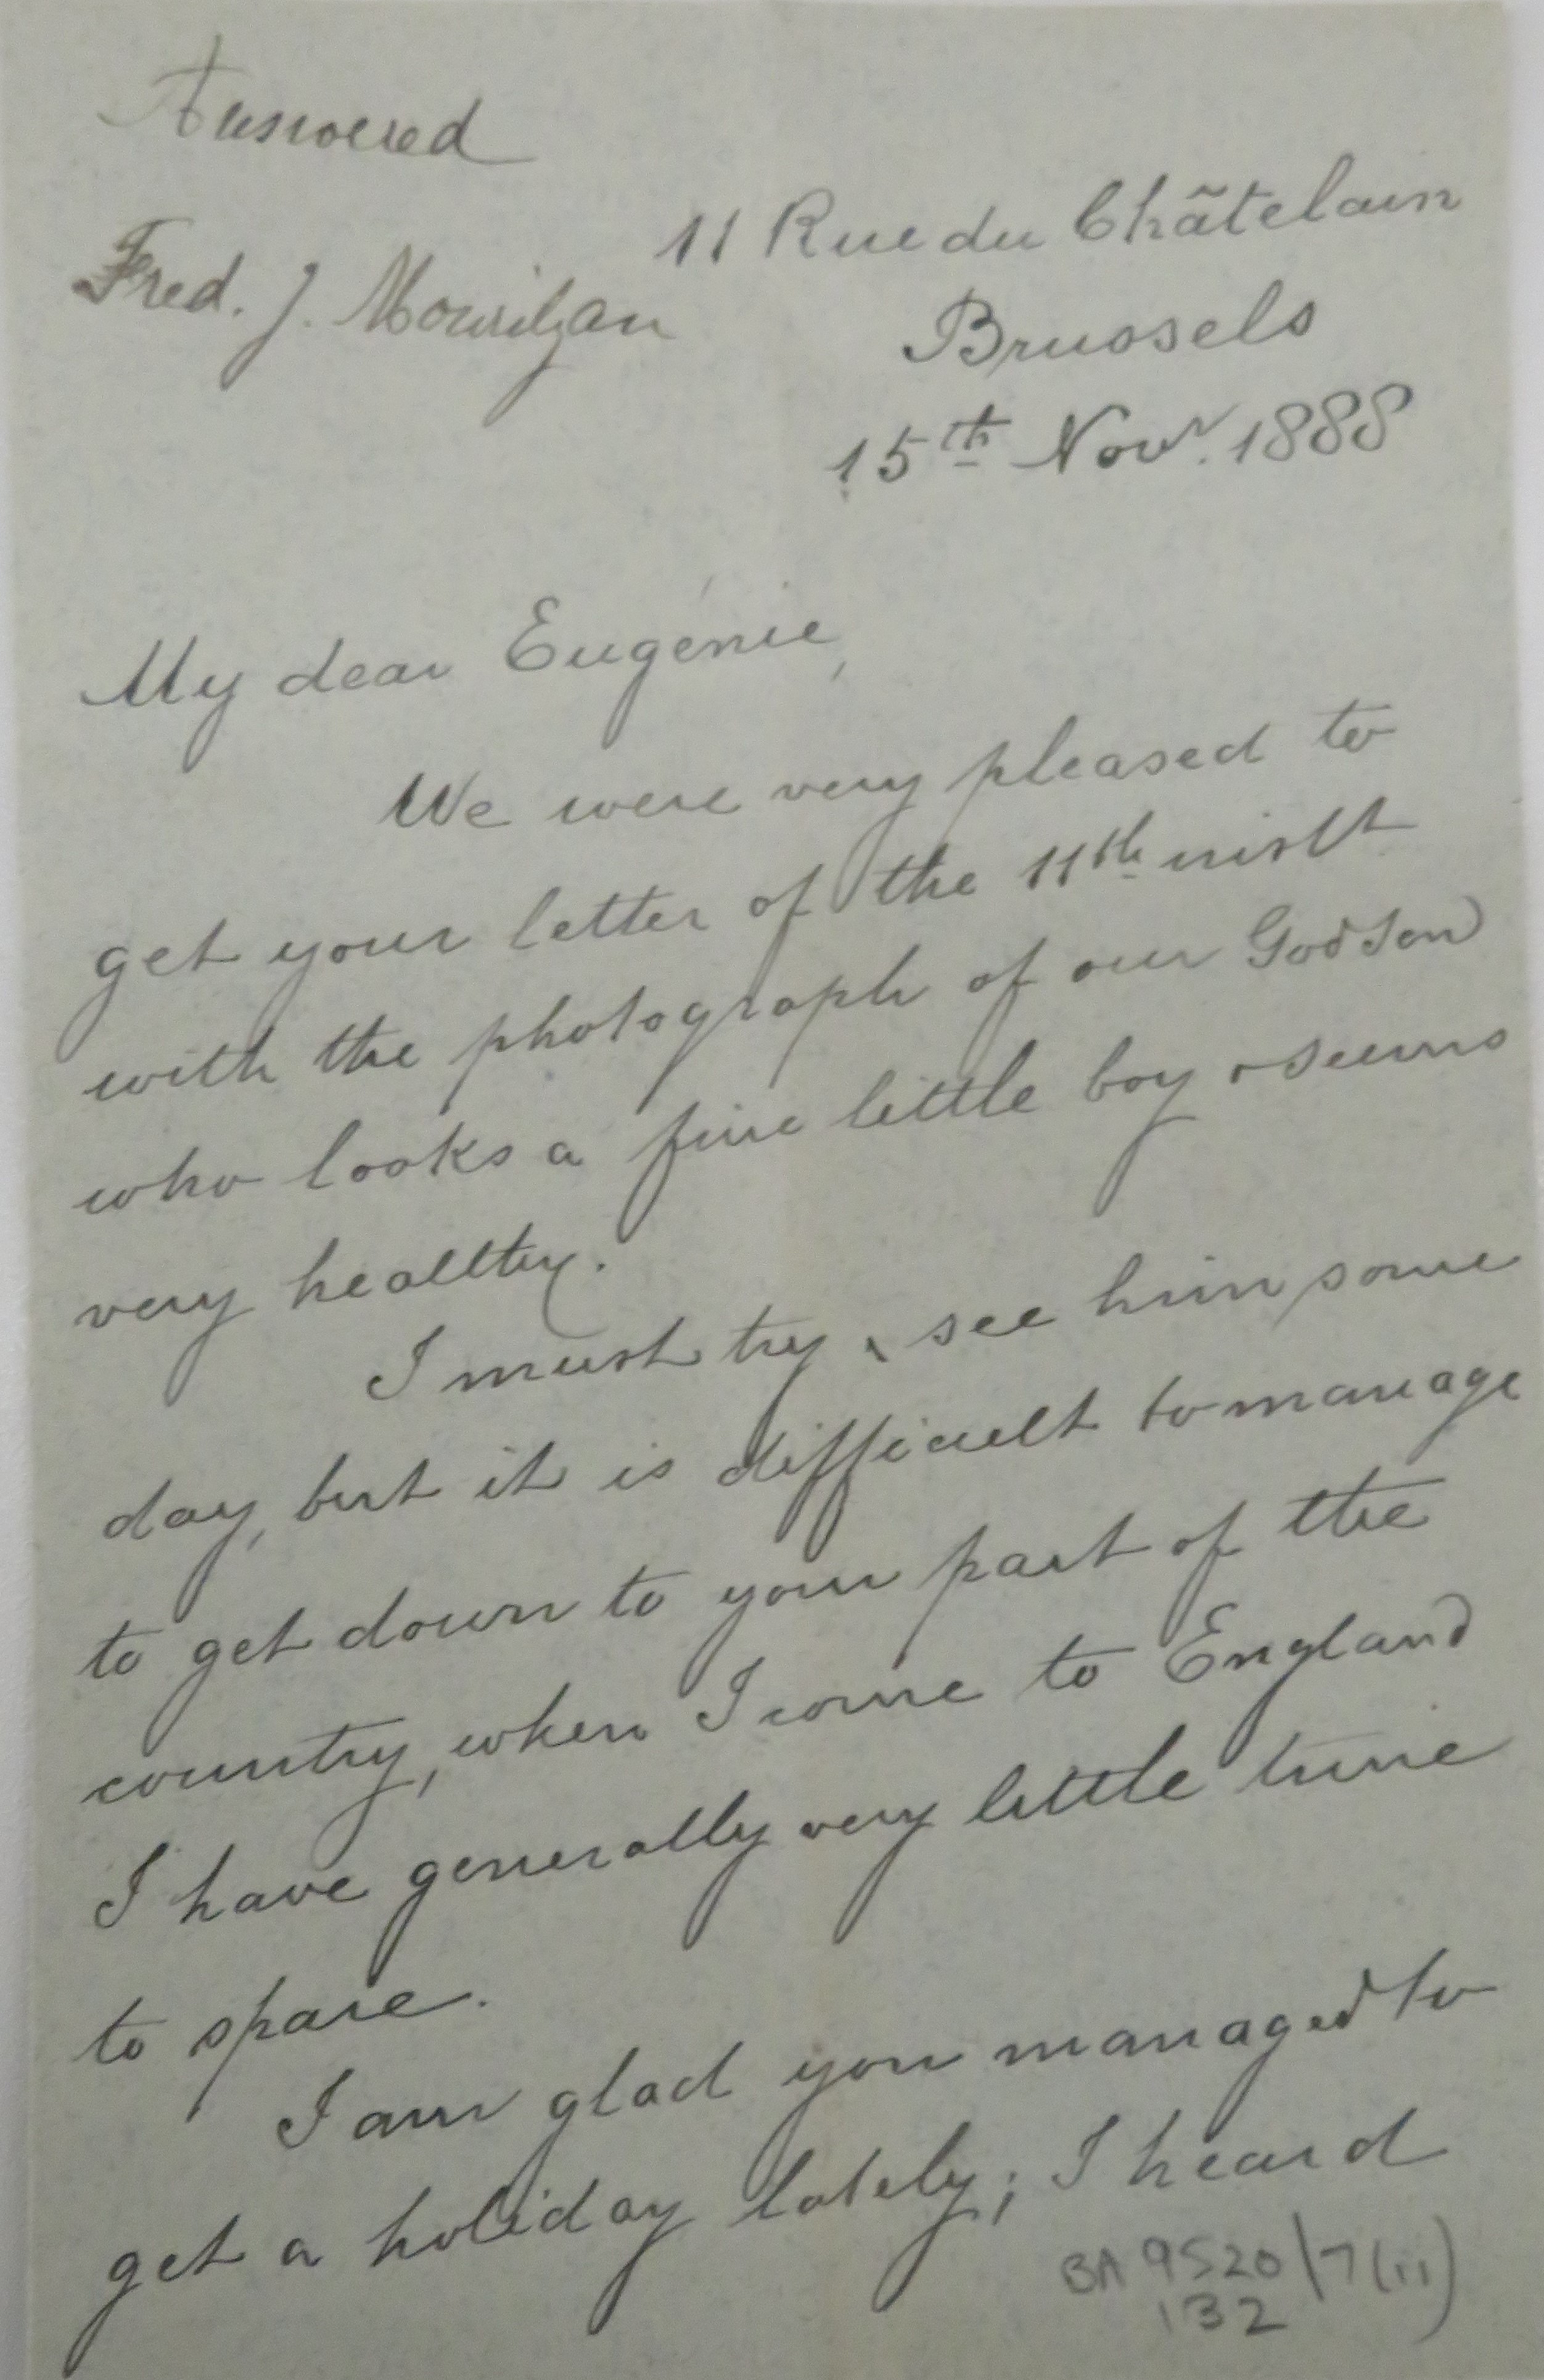 Answered
Fred. J. Mourilyan
11 Rue du Châtelain
Brussels
15th Novr. 1888
My dear Eugénie,
We were very pleased to
get your letter of the 11th instt
with the photograph of our Godson
who looks a fine little boy & seems
very healthy.
I must try & see him some
day, but it is difficult to manage
to get down to your part of the
country, when I come to England
I have generally very little time
to spare.
I am glad you managed to
get a holiday lately; I heard
BA 9520/7(ii)
132